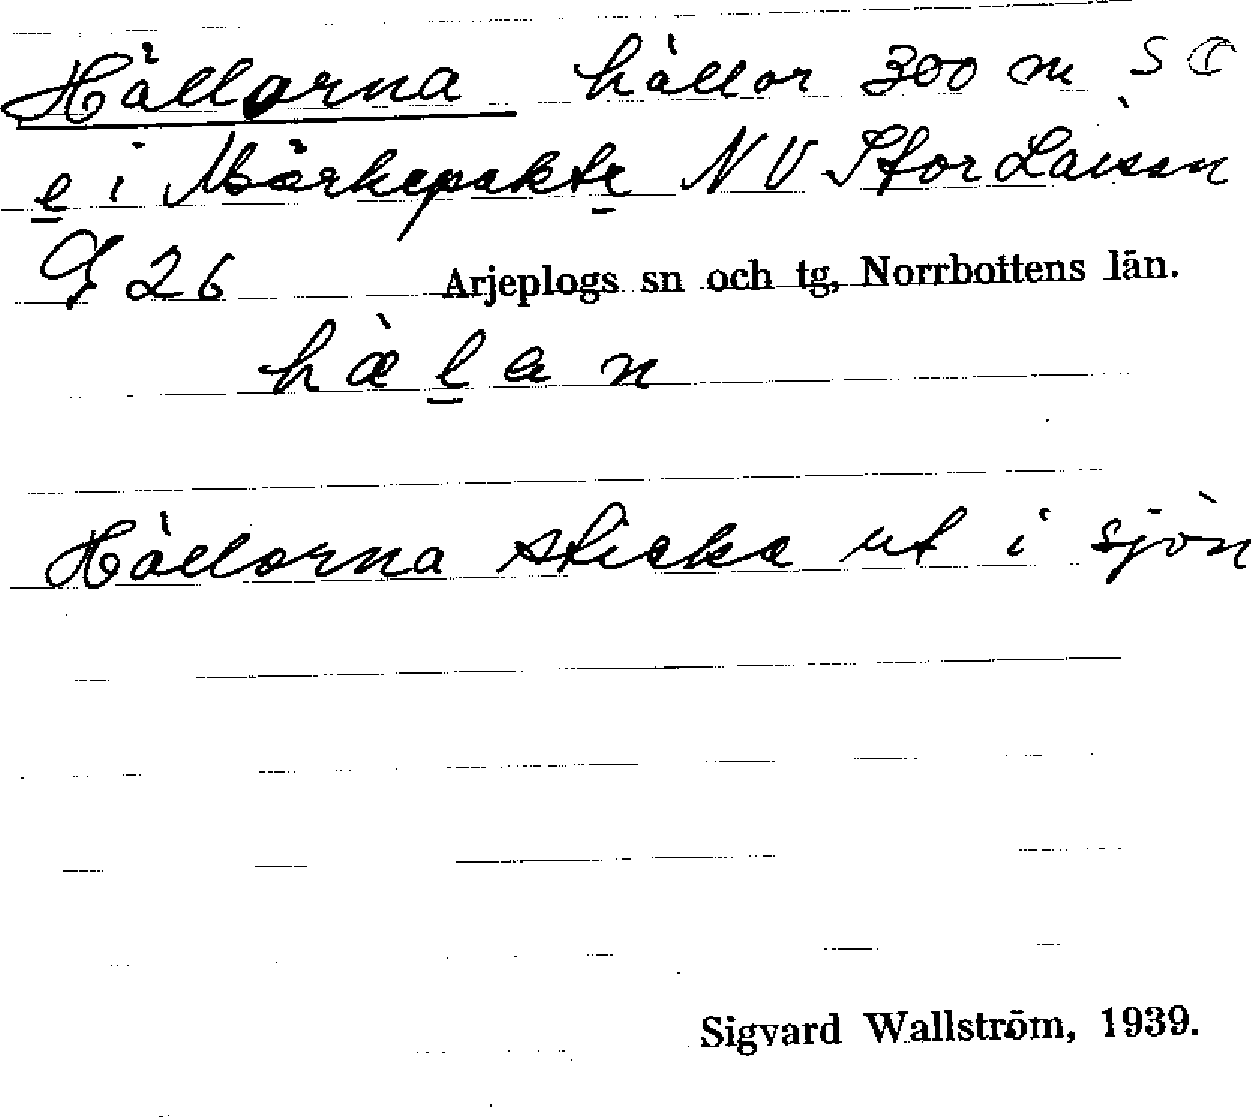 Hällorna hällor 300 m S
e i Mörkepakte NV Stor Laisan
G 26 Arjeplogs sn och tg, Norrbottens län.
hælan
Hällorna sticka ut i sjön
Sigvard Wallström, 1939.